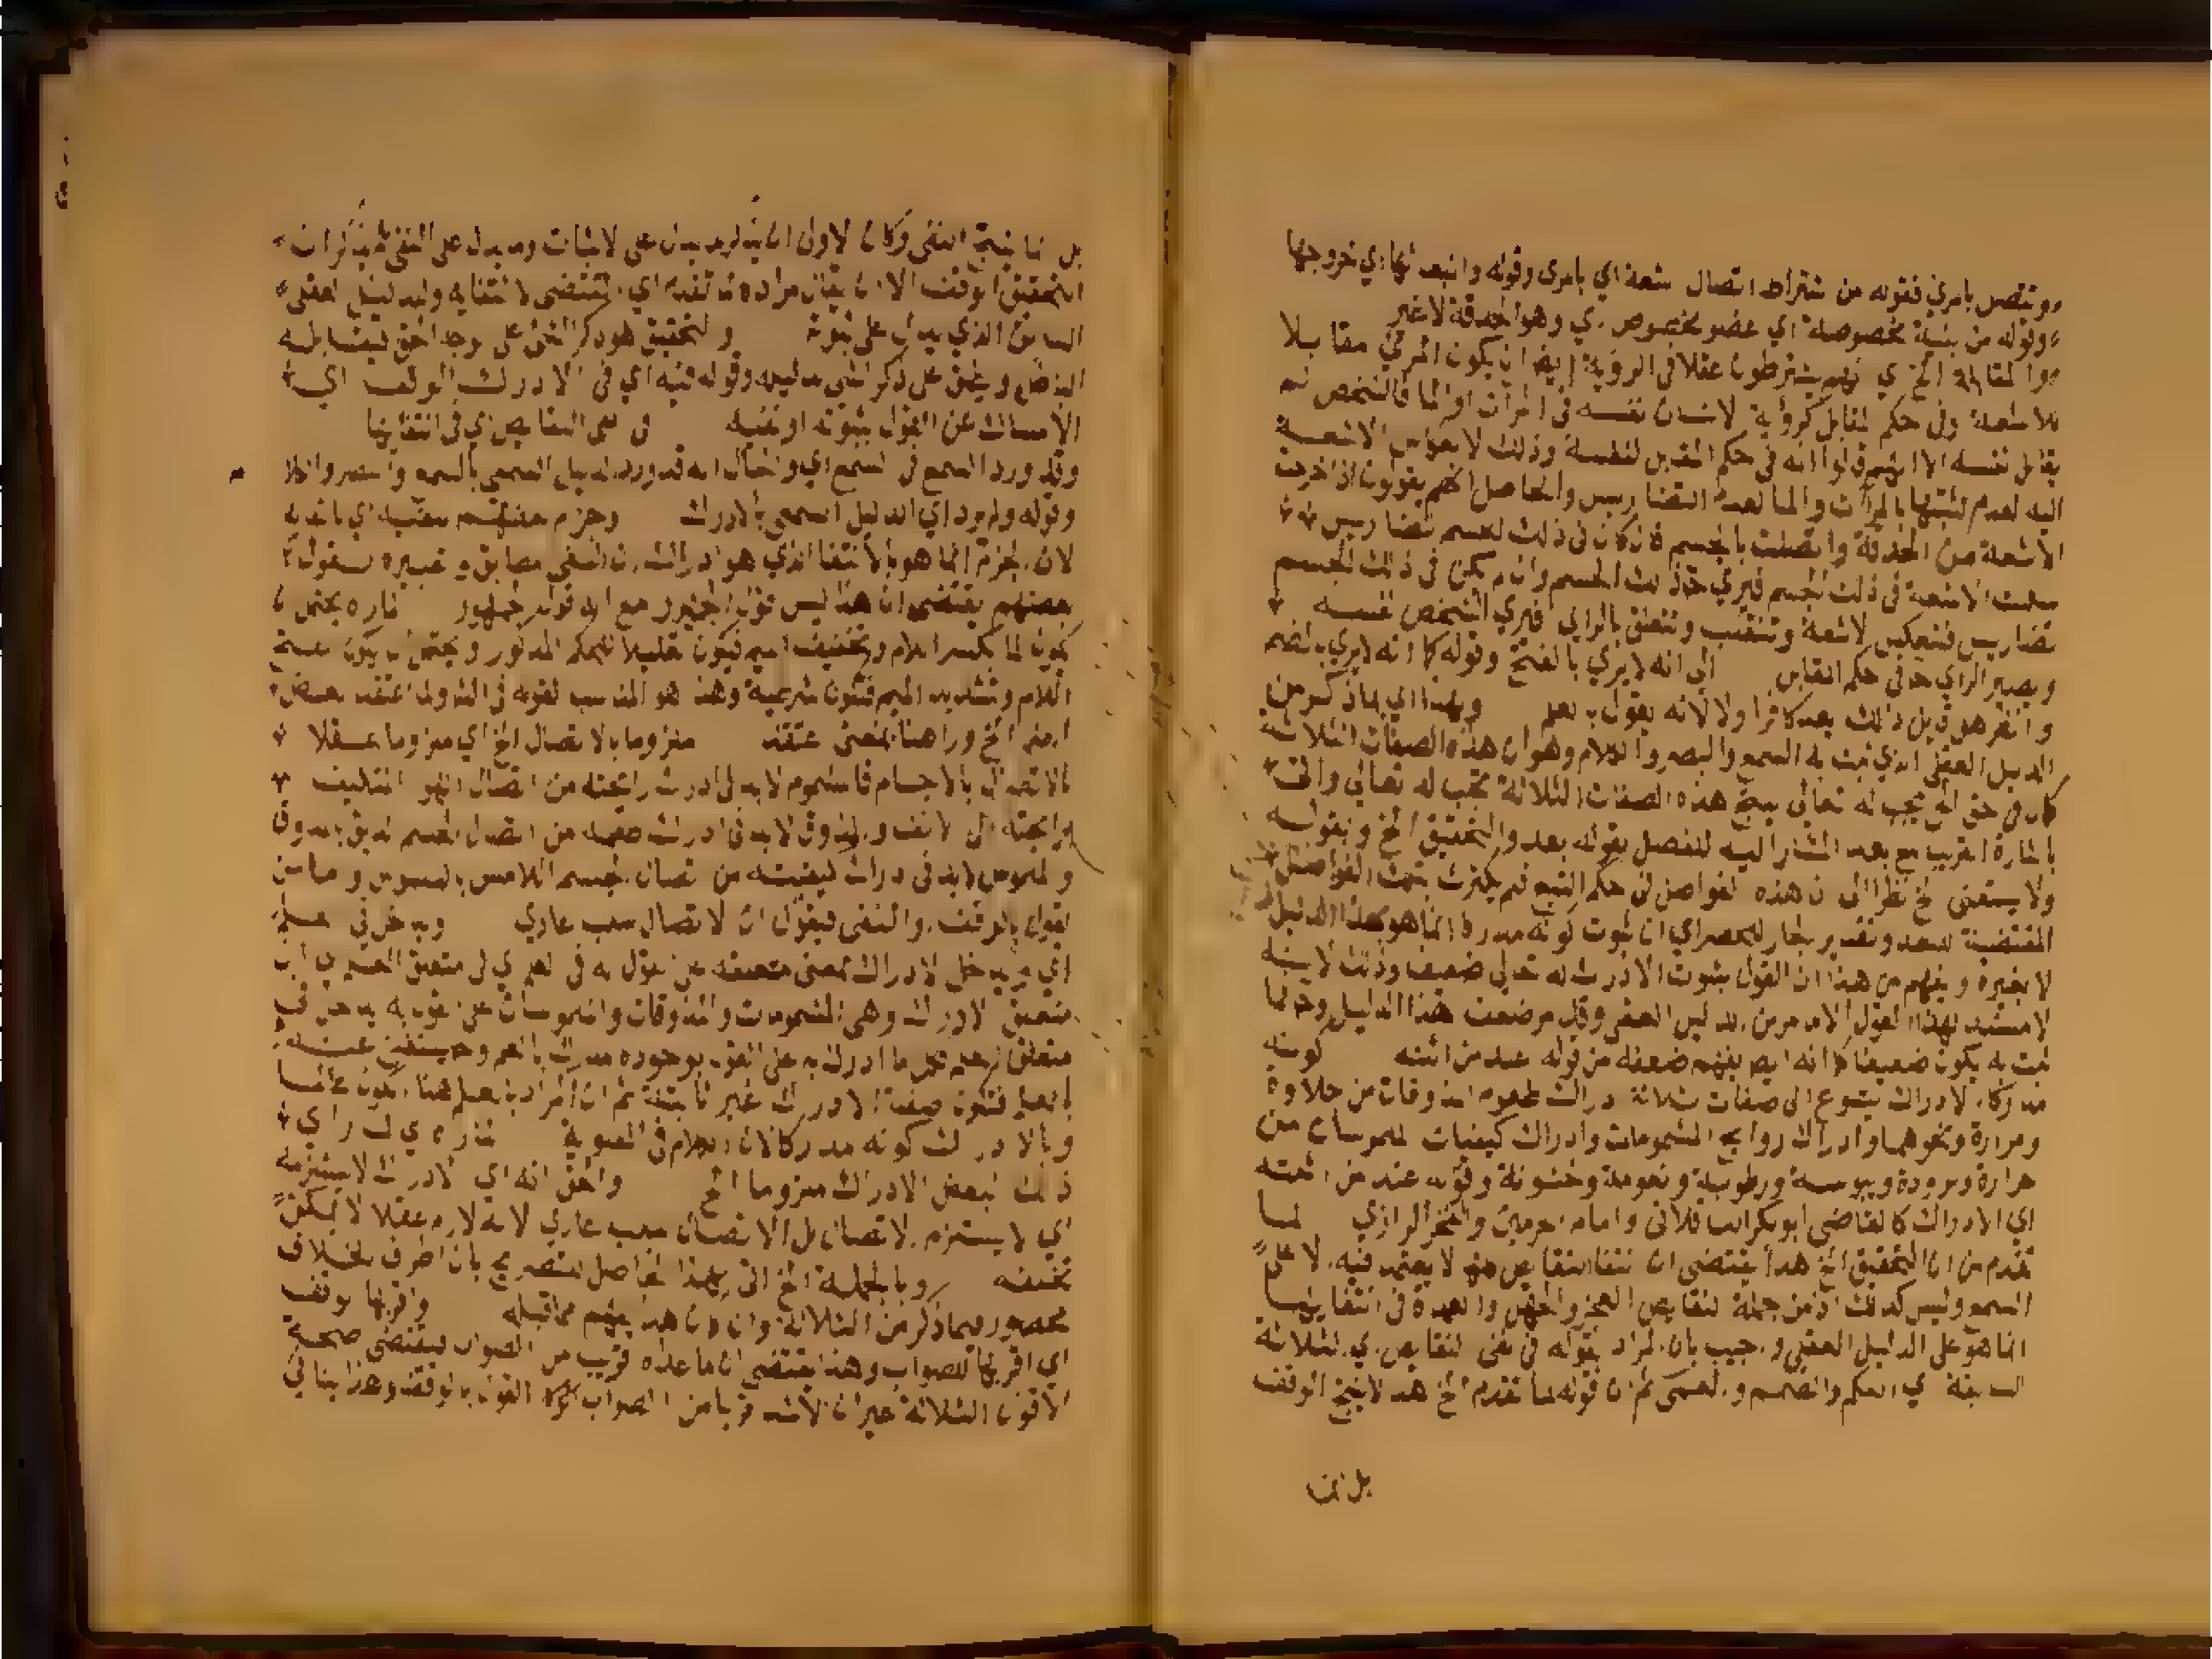 وتتصل بالمرئي فقوله من اشتراط اتصال اشعة اي بالمرئ وقوله وانبعاثها اي خروجها
وقوله من بنية مخصوصة اي عضو مخصوص اي وهو الحدقة لا غير
والمقابلة الخ اي فهم يشترطون عقلا في الرؤية ايضا ان يكون المرئي مقابلا
للاشعة وفي حكم المقابل كرؤية الانسان نفسه في المرآت او الما فالشخص لم
يقابل نفسه الا انهم قالوا انه في حكم المقابل لنفسه وذلك لانعكاس الاشعة
اليه لعدم تثبتها بالمرآت والما لعدم التضاريس والحاصل انهم يقولون اذا خرجت
الاشعة من الحدقة واتصلت بالجسم فان كان في ذلك الجسم تضاريس
الاشعة في ذلك الجسم فيري ذلك الجسم وان لم يكن في ذلك الجسم
تضاريس فتنعكس الاشعة وتنقلب وتتعلق بالرائي فيري الشخص نفسه
ويصير الرائي في حكم المقابل الى انه لا يري بالفتح وقوله كما انه لا يري بالضم
وانظر هل قائل ذلك يعد كافرا اولا لانه يقول يعلم وبهذا اي بما ذكر من
الدليل العقلي الذي ثبت به السمع والبصر والكلام وهو ان هذه الصفات الثلاثة
كمال في حق الحي يجب له تعالى ينتج هذه الصفات الثلاثة تجب له تعالى
باشارة القريب مع بعد المشار اليه للفصل بقوله بعد والتحقيق الخ وبقوله
ولا يستغنى الخ نظرا الى ان هذه الفواصل في حكم التبع فلم يكترث بتلك الفواصل
المقتضية للبعد وتقديم الجار للحصر اي ان ثبوت كونه مدركا انما هو بهذا الدليل
لا بغيره ويفهم من هذا ان القول بثبوت الادراك له تعالى ضعيفا وذلك لانه
لا مستند لهذا القول الا ما مر من الدليل العقلي وقد مر ضعف هذا الدليل وحينئذ
ثبت به يكون ضعيفا كما انه ايضا يفهم ضعفه من قوله عند من اثبته كونه
مدركا الادراك يتنوع الى صفات ثلاثة ادراك طعوم المذوقات من حلاوة
ومرارة ونحوهما وادراك روايح المشمومات وادراك كيفيات الملموسات من
حرارة وبرودة ويبوسة ورطوبة ونعومة وخشونة وقوله عند من اثبته
اي الادراك كالقاضي ابو بكر الباقلاني وامام الحرمين والفخر الرازي لما
تقدم من ان التحقيق الخ هذا يقتضي ان انتفا النقايص لا يعتمد فيه الا على
السمع وليس كذلك اذ من جملة النقايص العجز والجهل والعمدة في انتفايهما
انما هو على الدليل العقلي واجيب بان المراد بقوله في نفى النقايص اي الثلاثة
السابقة اي البكم والصمم والعمى ثم ان قوله لما تقدم الخ هذا لا ينتج الوقف
بل انما
بل انما ينتج النفى وكان الاولى ان يقول يدل على الاثبات وما يدل على النفى
التحقيق الوقف الا ان يقال مراده ما تقدم اي المقتضى لانتفايه والدليل العقلى
السابق الذي يدل على ثبوته والتحقيق هو ذكر الشئ على وجه الحق فيقابله
الباطل ويطلق على ذكر الشئ بدليله وقوله فيه اي في الادراك الوقف اي
الامساك عن القول بثبوته او نفيه في نفى النقايص اي في انتفايها
وقد ورد السمع في السمع اي والحال انه قد ورد الدليل السمعى بالسمع والبصر والكلام
وقوله ولم يرد اي الدليل السمعى بالادراك وجزم بعضهم بنفيه اي بانتفايه
لان الجزم انما هو بالانتفا الذي هو ادراك ان النفى مطابق وتعبيره بقوله
بعضهم يقتضى ان هذا ليس قول الجمهور مع انه قول الجمهور لما رءاه يحتمل ان
يكون لما بكسر اللام وتخفيف الميم فيكون تعليلا للحكم المذكور ويحتمل ان يكون بفتح
اللام وتشديد الميم فتكون شرطية وهذا هو المناسب لقوله في الشق الاول لما اعتقد بعض
الخ وراى هنا بمعنى اعتقد ملزوما بالاتصال الخ اي ملزوما عقلا
بالاتصال بالاجسام فالمشموم لابد في ادراك رائحته من اتصال الهوا المتكيف
برايحته الى الانف والمذوق لابد في ادراك طعمه من اتصال الجسم الذايق بالمذوق
والملموس لابد في ادراك كيفيته من اتصال الجسم اللامس بالملموس واما من
يقول بالوقف والنفى فيقول ان الاتصال سبب عادي ويدخل في علمه
اي ويدخل الادراك بمعنى متعلقه على القول به في العلم اي في متعلق العلم اي ان
متعلق الادراك وهي المشمومات والمذوقات والملموسات على القول به يدخل في
متعلق العلم فكل ما ادرك به على القول بوجوده مدرك بالعلم وحينئذ يستغنى عنه
بالعلم فتكون صفة الادراك غير ثابتة ثم ان المراد بالعلم هنا الكون عالما
وبالادراك كونه مدركا لان الكلام في المعنوية لما رءاه اي لما راي
ذلك البعض الادراك ملزوما الخ والحق انه اي الادراك لا يستلزمه
اي لا يستلزم الاتصال بل الاتصال سبب عادي لا انه لازم عقلا لا يمكن
تخلفه وبالجملة الخ اتى بهذا الحاصل للتصريح بان اطراف الخلاف
محصورة فيما ذكر من الثلاثة وان كان هذا يفهم مما قبله واقربها الوقف
اي اقربها للصواب وهذا يقتضي ان ما عداه قريب من الصواب فيقتضي صحة
الاقوال الثلاثة غير ان الاشد قربا من الصواب القول بالوقف وهذا ينافي